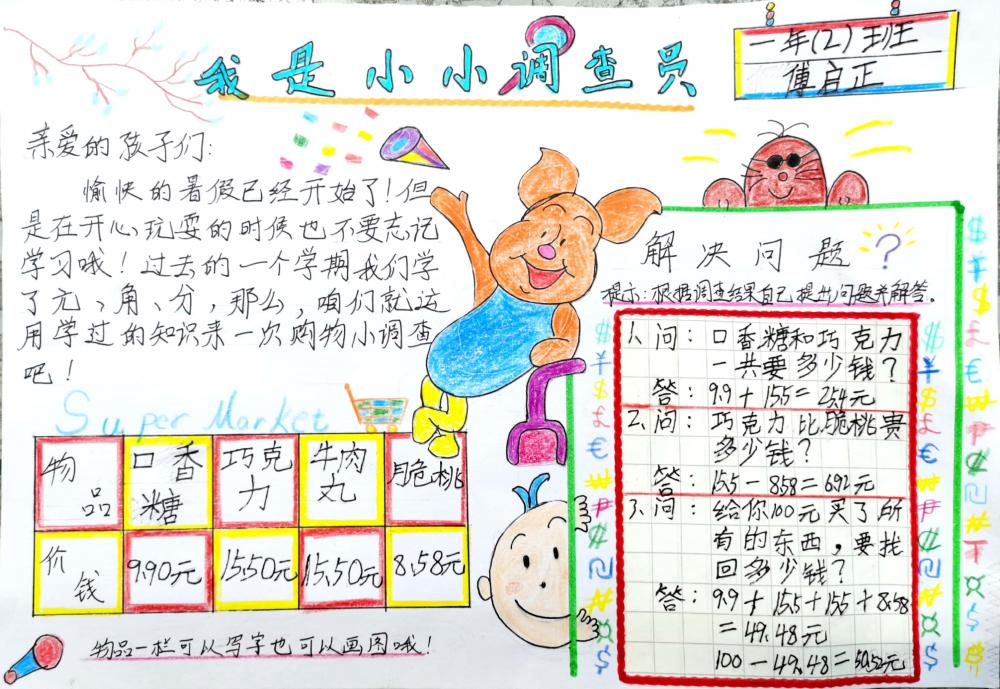 我是小小调查员
一年(2)班
傅启正
亲爱的孩子们:
愉快的暑假已经开始了!但
是在开心玩耍的时候也不要忘记
学习哦!过去的一个学期我们学
了元、角、分,那么,咱们就运
用学过的知识来一次购物小调查
吧!
Super Market
物品 口香糖 巧克力 牛肉丸 脆桃
价钱 9.90元 15.50元 15.50元 8.58元
物品一栏可以写字也可以画图哦!
解决问题?
提示:根据调查结果自己提出问题并解答。
1、问:口香糖和巧克力
一共要多少钱?
答:9.9+15.5=25.4元
2、问:巧克力比脆桃贵
多少钱?
答:15.5-8.58=6.92元
3、问:给你100元买了所
有的东西,要找
回多少钱?
答:9.9+15.5+15.5+8.58
=49.48元
100-49.48=50.52元